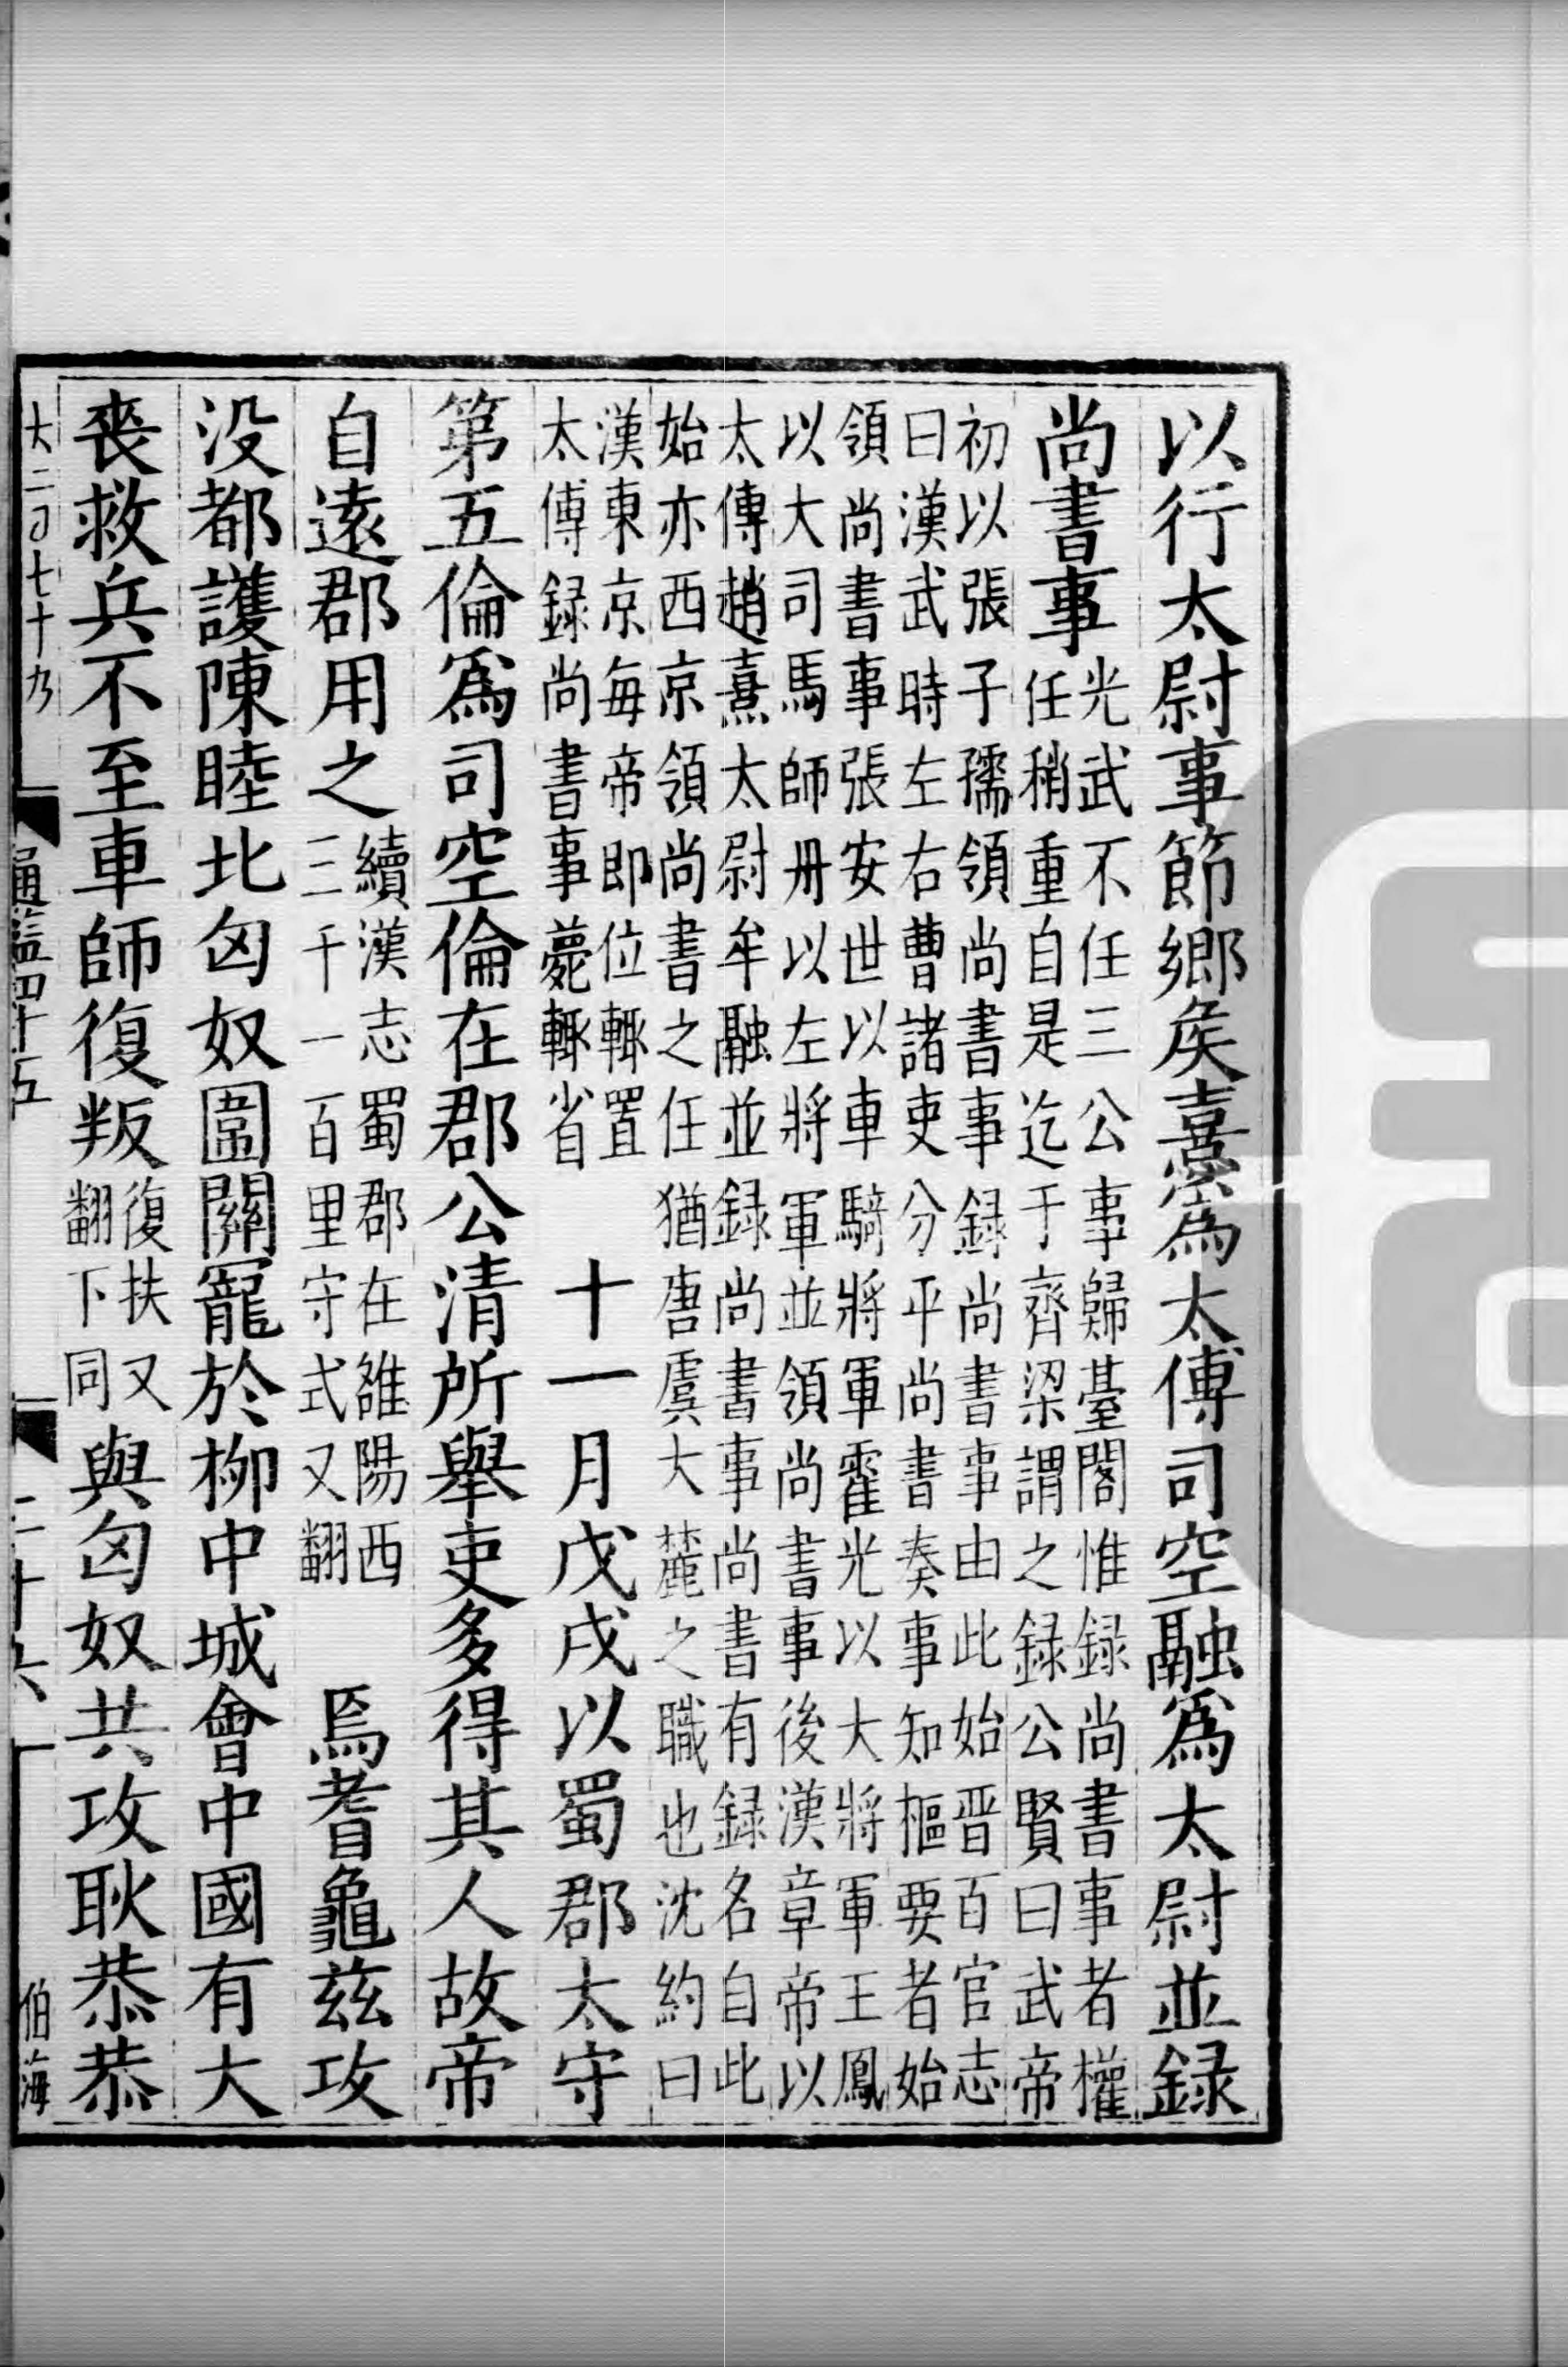 以行太尉事節鄉矦憙爲太傅司空融爲太尉並録
尚書事光武不任三公事歸臺閣惟録尚書事者權
任稍重自是迄于齊梁謂之録公賢曰武帝
初以張子孺領尚書事録尚書事由此始晋百官志
曰漢武時左右曹諸吏分平尚書奏事知樞要者始
領尚書事張安世以車騎將軍霍光以大將軍王鳳
以大司馬師丹以左將軍並領尚書事後漢章帝以
太傅趙憙太尉牟融並録尚書事尚書有録名自此
始亦西京領尚書之任猶唐虞大麓之職也沈約曰
漢東京每帝即位輒置
太傅録尚書事薨輒省
十一月戊戌以蜀郡太守
第五倫爲司空倫在郡公清所舉吏多得其人故帝
自遠郡用之續漢志蜀郡在雒陽西
三千一百里守式又翻
焉耆龜兹攻
没都護陳睦北匈奴圍關寵於柳中城會中國有大
喪救兵不至車師復叛復扶又
翻下同
與匈奴共攻耿恭恭
大二百七十九
通鑑四十五
二十六
伯海